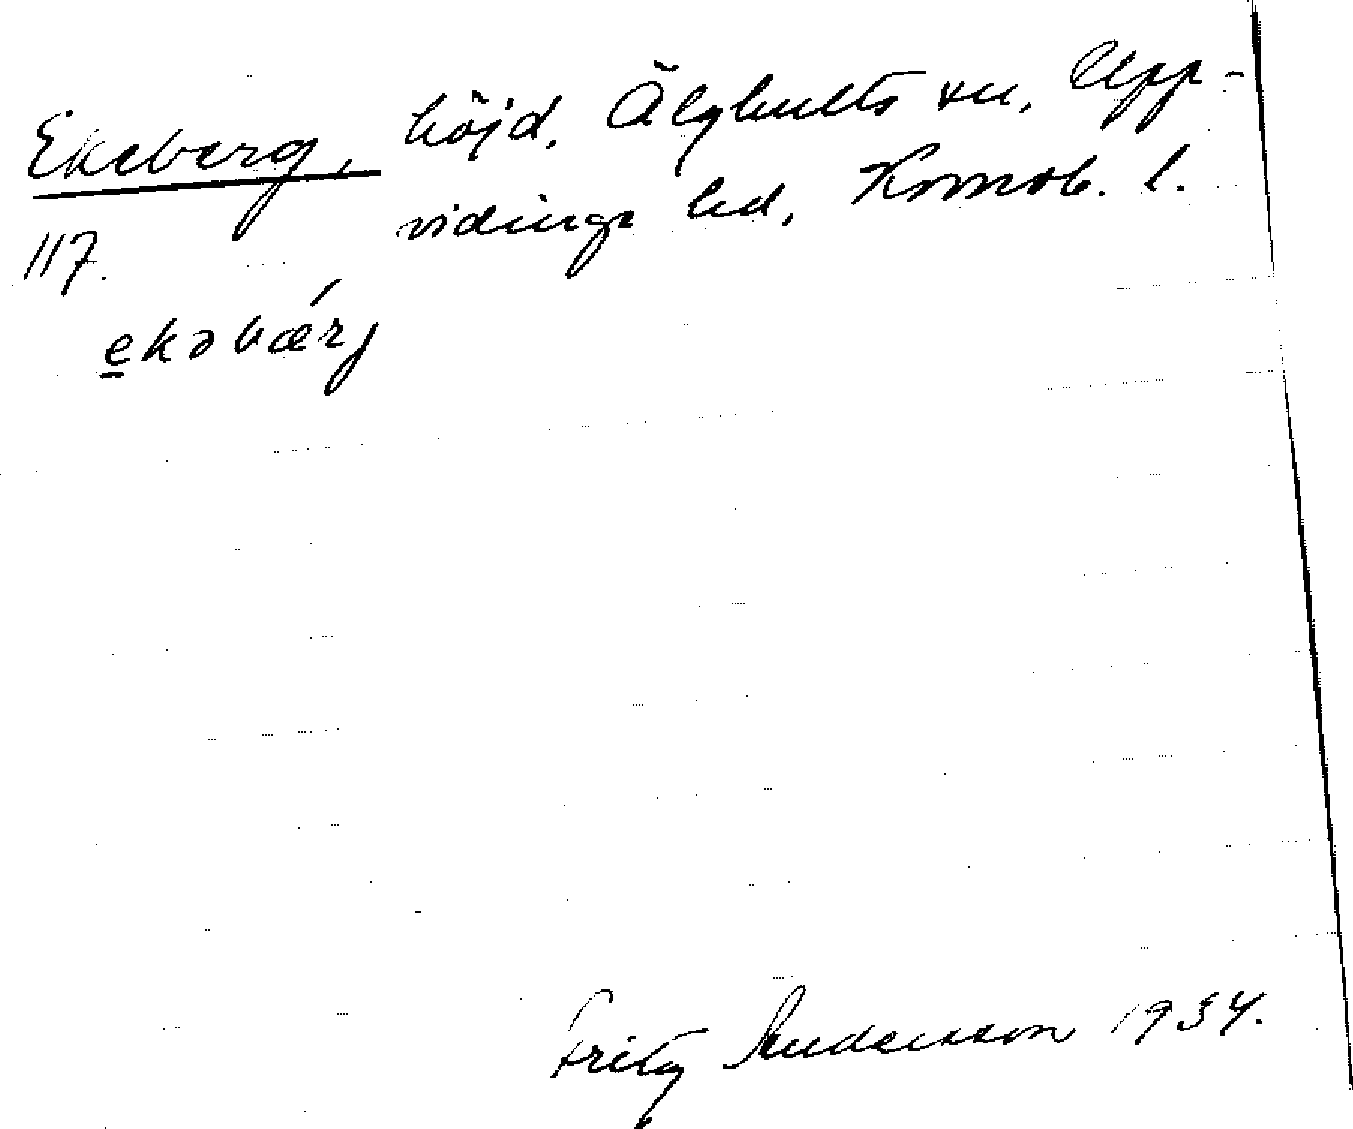 Ekeberg, höjd, Älghults sn, Upp-
117. vidinge hd, Kronob. l.
ekəbærj
Fritz Andersson 1934.